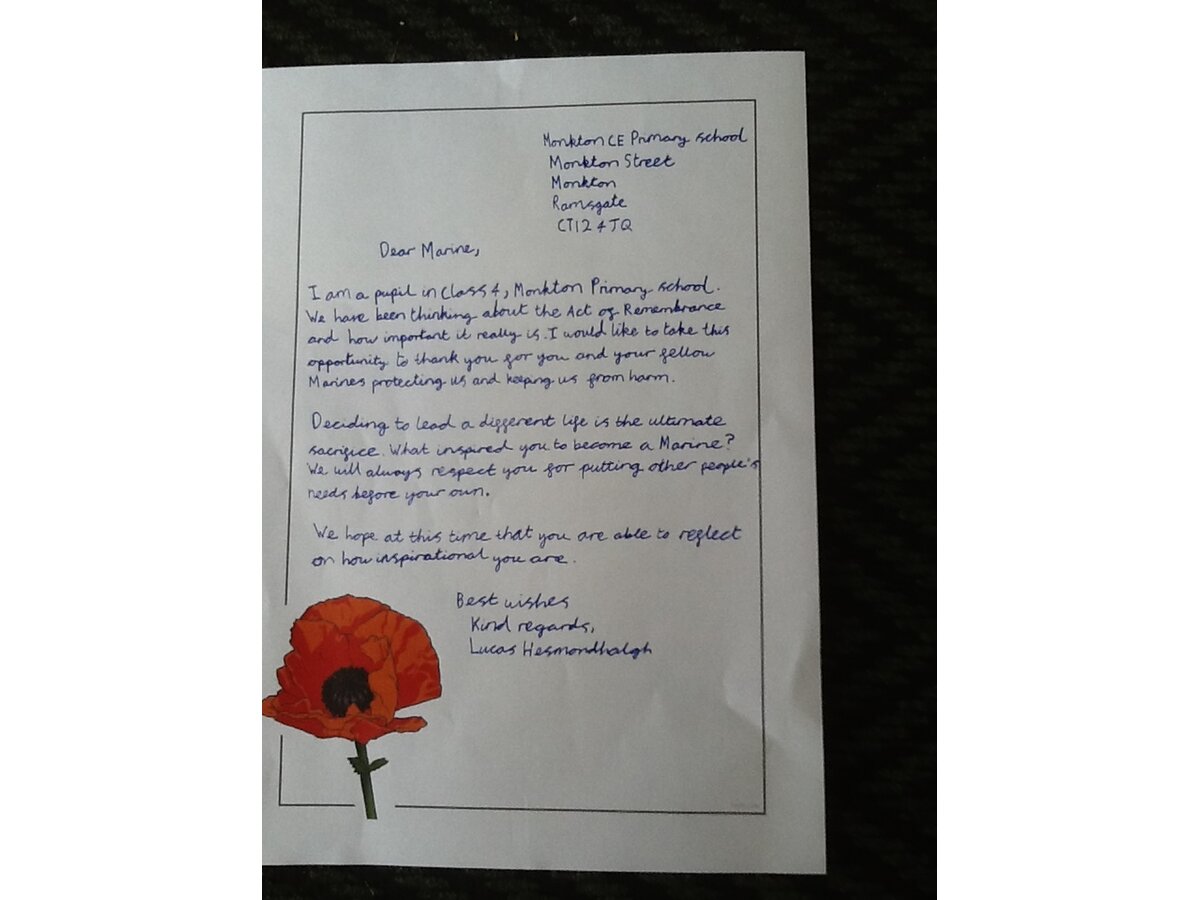 Monkton CE Primary school
Monkton Street
Monkton
Ramsgate
CT12 4JQ
Dear Marine,
I am a pupil in Class 4, Monkton Primary school.
We have been thinking about the Act of Remembrance
and how important it really is. I would like to take this
opportunity to thank you for you and your fellow
Marines protecting us and keeping us from harm.
Deciding to lead a different life is the ultimate
sacrifice. What inspired you to become a Marine?
We will always respect you for putting other people's
needs before your own.
We hope at this time that you are able to reflect
on how inspirational you are.
Best wishes
Kind regards,
Lucas Hesmondhalgh